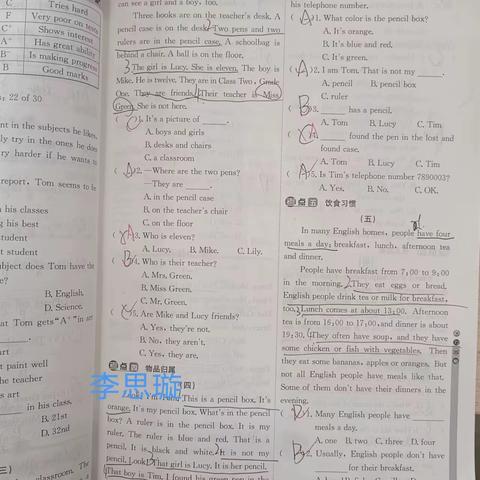 C Tries hard
F Very poor on tests
C⁺ Shows interest
A⁺ Has great ability
B⁻ Is making progress
B Good marks
s, 22 of 30
ent in the subjects he likes.
ly try in the ones he does
ry harder if he wants to
report, Tom seems to be
n his classes
g his best
student
t student
ubject does Tom have the
B. English.
D. Science.
at Tom gets "A⁺" in art
art
t paint well
he teacher
s art
in his class.
B. 21st
D. 32nd
can see a girl and a boy, too.
Three books are on the teacher's desk. A
pencil case is on the desk. Two pens and two
rulers are in the pencil case. A schoolbag is
behind a chair. A ball is on the floor.
The girl is Lucy. She is eleven. The boy is
Mike. He is twelve. They are in Class Two, Grade
One. They are friends. Their teacher is Miss
Green. She is not here.
( C )1. It's a picture of ____.
A. boys and girls
B. desks and chairs
C. a classroom
( A )2. —Where are the two pens?
—They are ____.
A. in the pencil case
B. on the teacher's chair
C. on the floor
( A )3. Who is eleven?
A. Lucy. B. Mike. C. Lily.
( B )4. Who is their teacher?
A. Mrs. Green.
B. Miss Green.
C. Mr. Green.
( )5. Are Mike and Lucy friends?
A. Yes, they're not.
B. No, they aren't.
C. Yes, they are.
题点四 物品归属
李思璇
(四)
This is a pencil box. It's
orange. It's my pencil box. What's in the pencil
box? A ruler is in the pencil box. It is my
ruler. The ruler is blue and red. That is a
pencil. It is black and white. It is not my
pencil. Look! That girl is Lucy. It is her pencil.
That boy is Tim. I found his green pen in the
his telephone number.
( A )1. What color is the pencil box?
A. It's orange.
B. It's blue and red.
C. It's green.
( A )2. I am Tom. That is not my ____.
A. pencil B. pencil box
C. ruler
( B )3. ____ has a pencil.
A. Tom B. Lucy C. Tim
( )4. ____ found the pen in the lost and
found case.
A. Tom B. Lucy C. Tim
( A )5. Is Tim's telephone number 7890003?
A. Yes. B. No. C. OK.
题点五 饮食习惯
(五)
In many English homes, people have four
meals a day: breakfast, lunch, afternoon tea
and dinner.
People have breakfast from 7:00 to 9:00
in the morning. They eat eggs or bread.
English people drink tea or milk for breakfast,
too. Lunch comes at about 13:00. Afternoon
tea is from 16:00 to 17:00, and dinner is about
19:30. They often have soup, and they have
some chicken or fish with vegetables. Then
they eat some bananas, apples or oranges. But
not all English people have meals like that.
Some of them don't have their dinners in the
evening.
( D )1. Many English people have ____
meals a day.
A. one B. two C. three D. four
( B )2. Usually, English people don't have
____ for their breakfast.